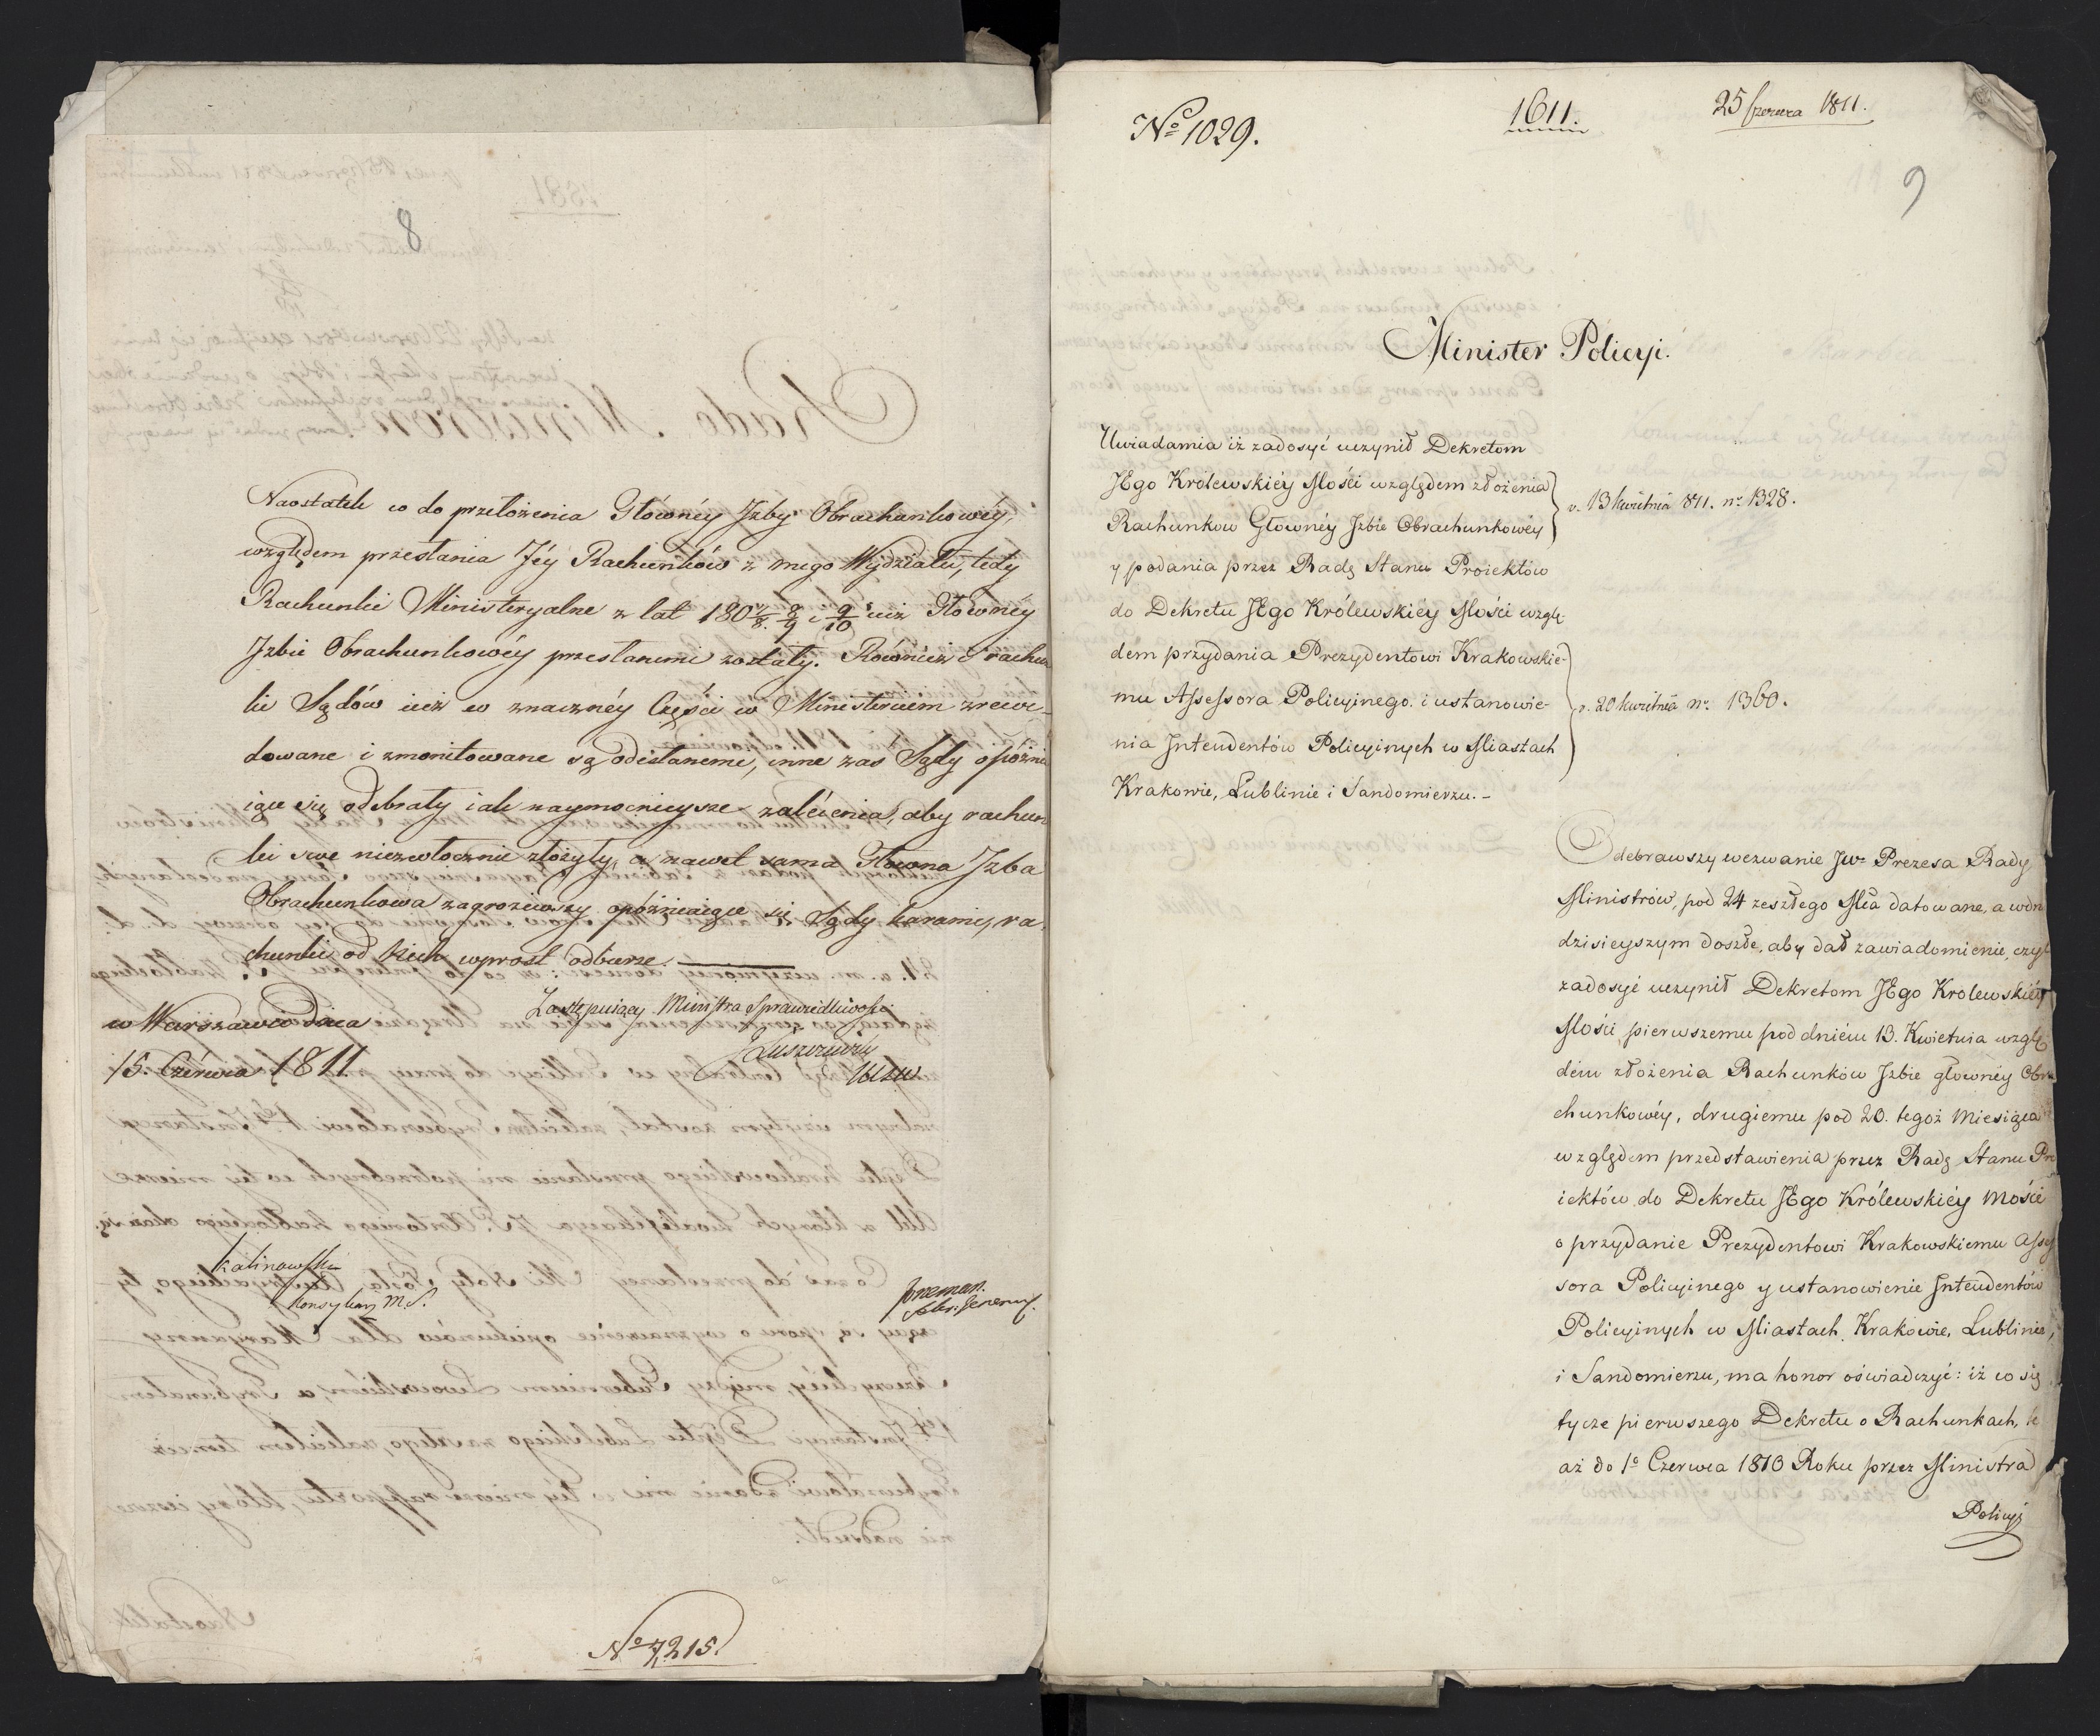 8
Naostatek co do przełożenia Głównéy Jzby Obrachunkowéy,
względem przesłania Jéy Rachunków z mego Wydziału, tedy
Rachunki Ministeryalne z lat 180 7/8. 8/9 i 9/10 iuż Głownéy
Jzbie Obrachunkowéy przesłanemi zostały. Również i rachun
ki Sądów iuż w znacznéy Części w Ministerium zrewi-
dowane i zmonitowane są odesłanemi, inne zas Sądy opóźnia
iące się odebrały iak naymocnieysze zalécenia, aby rachun
ki swe niezwłocznie złożyły, a nawet sama Głowna Jzba
Obrachunkowa zagroziwszy opóźniaiące się Sądy karami, ra-
chunki od Nich wprost odbierze.
w Warszawie Dnia
15. Czérwca 1811
Zastępuiący Ministra Sprawiedliwości
Łuszczewski
Kalinowski
Konsyliarz M. S.
Sekr: Generny.
No 7,215.
No 1029.
1611.
25 Czerwca 1811.
9
Minister Policyi.
Uwiadamia iż zadosyć uczynił Dekretom
JEgo Królewskiéy Mości względem złożenia
Rachunkow Głownéy Jzbie Obrachunkowéy
y podania przez Radę Stanu Proiektów
do Dekretu JEgo Królewskiéy Mości wzglę-
dém przydania Prezydentowi Krakowskie-
mu Assessora Policyinego. i ustanowie-
nia Jntendentów Policyinych w Miastach
Krakowie, Lublinie i Sandomierzu. –
v. 13 kwietnia 811. no. 1328.
v. 20 kwietnia no. 1360.
Odebrawszy wezwanie Jwo Prezesa Rady
Ministrów, pod 24 zeszłego Mca datowane, a w dn
dzisieyszym doszłe, aby dał zawiadomienie, czyl
zadosyć uczynił Dekretom JEgo Krolewskiéy
Mości pierwszemu pod dniem 13. Kwietnia wzglę
dém złożenia Rachunków Jzbie głownéy Obra
chunkowéy, drugiemu pod 20. tegoż Miesiąca
względem przedstawienia przez Radę Stanu Pro
iektów do Dekretu JEgo Królewskiéy Mości
o przydanie Prezydentowi Krakowskiemu Asses
sora Policyinego y ustanowienie Jntendentów
Policyinych w Miastach, Krakowie, Lublinie,
i Sandomierzu, ma honor oświadczyć: iż co się
tycze pierwszego Dekretu o Rachunkach, te
aż do 1o Czerwca 1810 Roku przez Ministra
Policyi